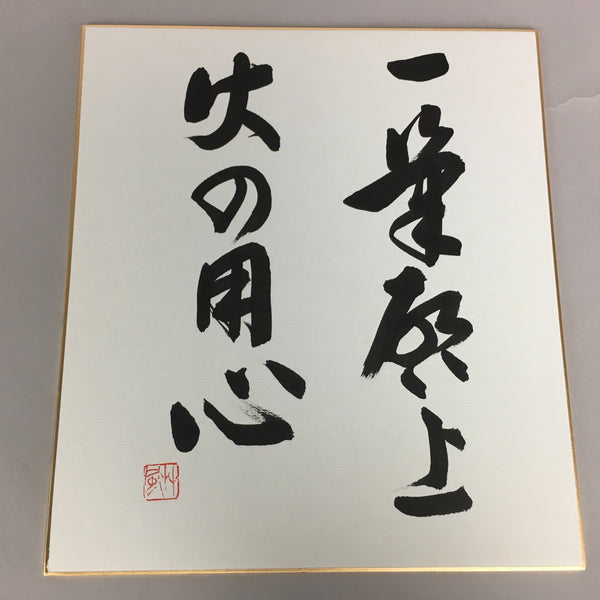 一筆啓上
火の用心